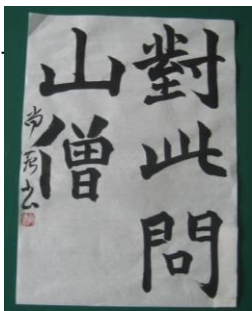 對此問
山僧